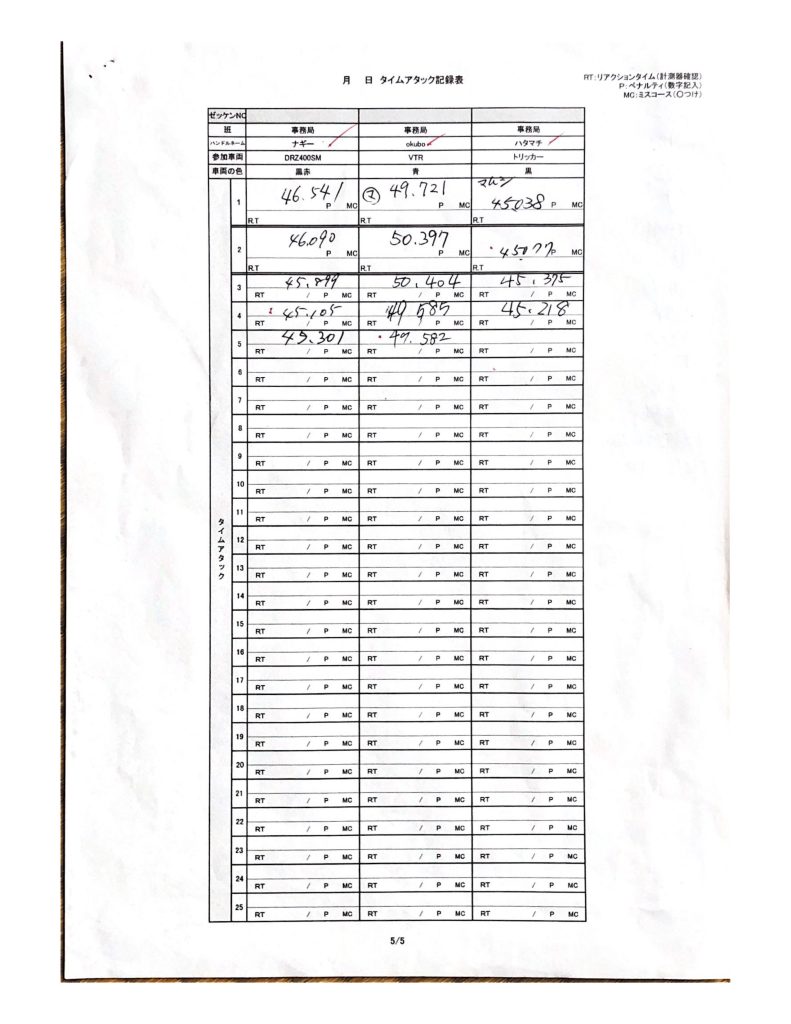 月 日 タイムアタック記録表
RT:リアクションタイム(計測器確認)
P:ペナルティ(数字記入)
MC:ミスコース(〇つけ)
ゼッケンNO
班 事務局 事務局 事務局
ハンドルネーム ナギー okubo ハタマチ
参加車両 DRZ400SM VTR トリッカー
車両の色 黒赤 青 黒
タイムアタック
1 46.541 P MC 49.721 P MC 45.038 P MC
R.T R.T R.T
2 46.090 P MC 50.397 P MC P MC
R.T R.T R.T
3 45.899 50.404 45.375
RT / P MC RT / P MC RT / P MC
4 45.105 49.585 45.218
RT / P MC RT / P MC RT / P MC
5 45.301 49.582
RT / P MC RT / P MC RT / P MC
6 RT / P MC RT / P MC RT / P MC
7 RT / P MC RT / P MC RT / P MC
8 RT / P MC RT / P MC RT / P MC
9 RT / P MC RT / P MC RT / P MC
10 RT / P MC RT / P MC RT / P MC
11 RT / P MC RT / P MC RT / P MC
12 RT / P MC RT / P MC RT / P MC
13 RT / P MC RT / P MC RT / P MC
14 RT / P MC RT / P MC RT / P MC
15 RT / P MC RT / P MC RT / P MC
16 RT / P MC RT / P MC RT / P MC
17 RT / P MC RT / P MC RT / P MC
18 RT / P MC RT / P MC RT / P MC
19 RT / P MC RT / P MC RT / P MC
20 RT / P MC RT / P MC RT / P MC
21 RT / P MC RT / P MC RT / P MC
22 RT / P MC RT / P MC RT / P MC
23 RT / P MC RT / P MC RT / P MC
24 RT / P MC RT / P MC RT / P MC
25 RT / P MC RT / P MC RT / P MC
5/5